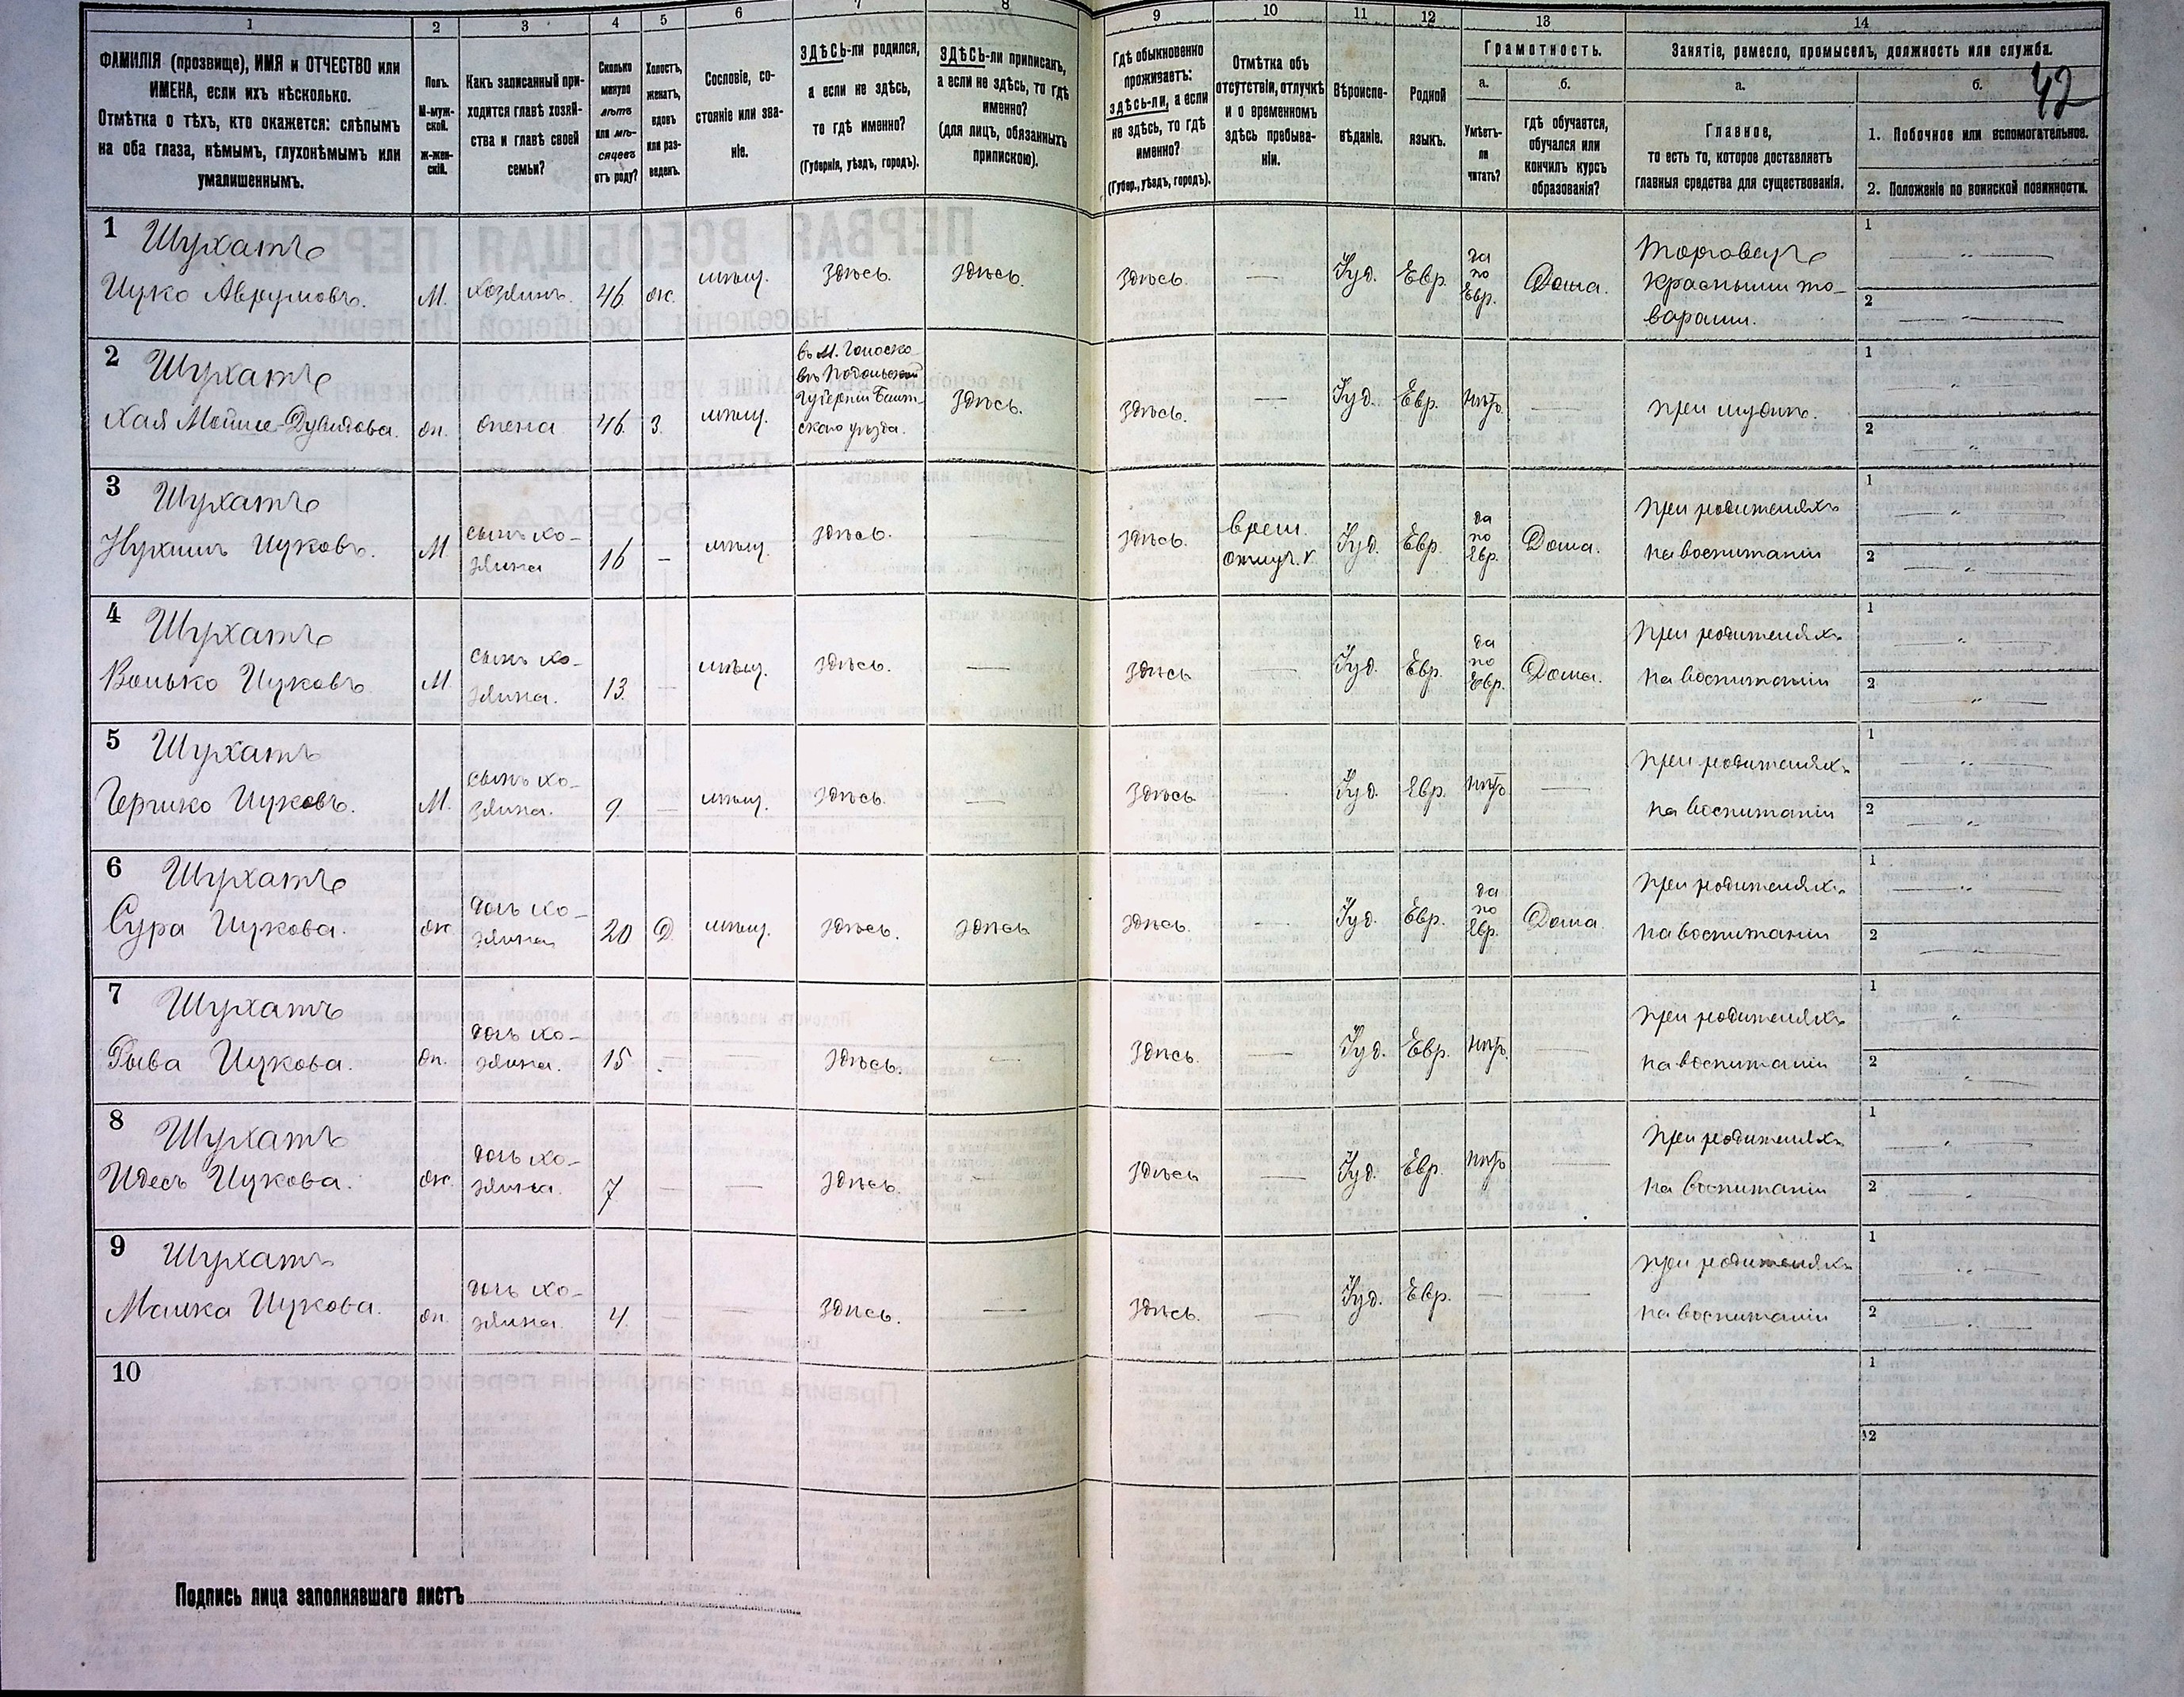 1 2 3 4 5 6 7 8 9 10 11 12 13 14
42
ФАМИЛІЯ (прозвище), ИМЯ и ОТЧЕСТВО или
ИМЕНА, если ихъ нѣсколько.
Отмѣтка о тѣхъ, кто окажется: слѣпымъ
на оба глаза, нѣмымъ, глухонѣмымъ или
умалишеннымъ.
Полъ.
М-муж-
ской.
Ж-жен-
скій.
Какъ записанный при-
ходится главѣ хозяй-
ства и главѣ своей
семьи?
Сколько
минуло
лѣтъ
или мѣ-
сяцевъ
отъ роду?
Холостъ,
женатъ,
вдовъ
или раз-
веденъ.
Сословіе, со-
стояніе или зва-
ніе.
ЗДѢСЬ-ли родился,
а если не здѣсь,
то гдѣ именно?
(Губернія, уѣздъ, городъ).
ЗДѢСЬ-ли приписанъ,
а если не здѣсь, то гдѣ
именно?
(для лицъ, обязанныхъ
припискою).
Гдѣ обыкновенно
проживаетъ:
здѣсь-ли, а если
не здѣсь, то гдѣ
именно?
(Губер., уѣздъ, городъ).
Отмѣтка объ
отсутствіи, отлучкѣ
и о временномъ
здѣсь пребыва-
ніи.
Вѣроиспо-
вѣданіе.
Родной
языкъ.
Грамотность.
а.
Умѣетъ-
ли
читать?
б.
гдѣ обучается,
обучался или
кончилъ курсъ
образованія?
Занятіе, ремесло, промыселъ, должность или служба.
а.
Главное,
то есть то, которое доставляетъ
главныя средства для существованія.
б.
1. Побочное или вспомогательное.
2. Положеніе по воинской повинности.
1 Шухатъ
Ицко Аврумовъ.
М.
хозяинъ.
46
ж.
мѣщ.
Здѣсь.
Здѣсь.
Здѣсь.
—
Іуд.
Евр.
да
по
Евр.
Дома.
Торговецъ
красными то-
варами.
1 — „ —
2 — „ —
2 Шухатъ
Хая Мойше-Дувидова.
ж.
жена
46.
З.
мѣщ.
въ М. Голоско-
въ Подольской
губерніи Балт-
скаго уѣзда.
Здѣсь.
Здѣсь.
—
Іуд.
Евр.
нѣтъ
—
при мужѣ.
1 — „ —
2 — „ —
3 Шухатъ
Нухимъ Ицковъ.
М.
сынъ хо-
зяина
16
—
мѣщ.
Здѣсь.
—
Здѣсь.
врем.
отлуч.
Іуд.
Евр.
да
по
Евр.
Дома.
При родителяхъ
на воспитаніи
1 — „ —
2 — „ —
4 Шухатъ
Волько Ицковъ
М.
сынъ хо-
зяина.
13.
—
мѣщ.
Здѣсь.
—
Здѣсь
—
Іуд.
Евр.
да
по
Евр.
Дома.
При родителяхъ
на воспитаніи
1 — „ —
2 — „ —
5 Шухатъ
Гершко Ицковъ.
М.
сынъ хо-
зяина.
9.
—
мѣщ.
Здѣсь.
—
Здѣсь
—
Іуд.
Евр.
нѣтъ
—
При родителяхъ
на воспитаніи
1 — „ —
2 — „ —
6 Шухатъ
Сура Ицкова.
ж.
дочь хо-
зяина
20
Д.
мѣщ.
Здѣсь.
Здѣсь
Здѣсь.
—
Іуд.
Евр.
да
по
Евр.
Дома.
При родителяхъ
на воспитаніи
1 — „ —
2 — „ —
7 Шухатъ
Рыва Ицкова.
ж.
дочь хо-
зяина.
15
-
Здѣсь.
—
Здѣсь.
—
Іуд.
Евр.
нѣтъ.
—
При родителяхъ
на воспитаніи
1 — „ —
2 — „ —
8 Шухатъ
Идесъ Ицкова.
ж.
дочь хо-
зяина.
7
—
—
Здѣсь.
—
Здѣсь
—
Іуд.
Евр.
нѣтъ
—
При родителяхъ
на воспитаніи
1 — „ —
2 — „ —
9 Шухатъ
Малка Ицкова.
ж.
дочь хо-
зяина.
4.
—
—
Здѣсь.
—
Здѣсь.
—
Іуд.
Евр.
—
—
При родителяхъ
на воспитаніи
1 — „ —
2 — „ —
10
1
2
Подпись лица заполнявшаго листъ